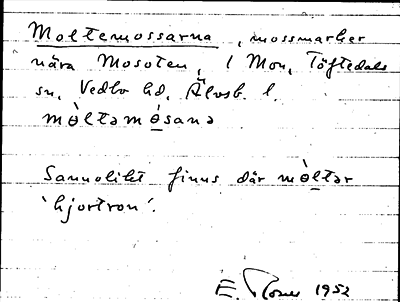 Moltemossarna, mossmarker
nära Mosoten, i Mon, Töftedals
sn, Vedbo hd, Älvsb. l.
mòltəmósana
Sannolikt finns där mòltər
'hjortron'.
E. 1952